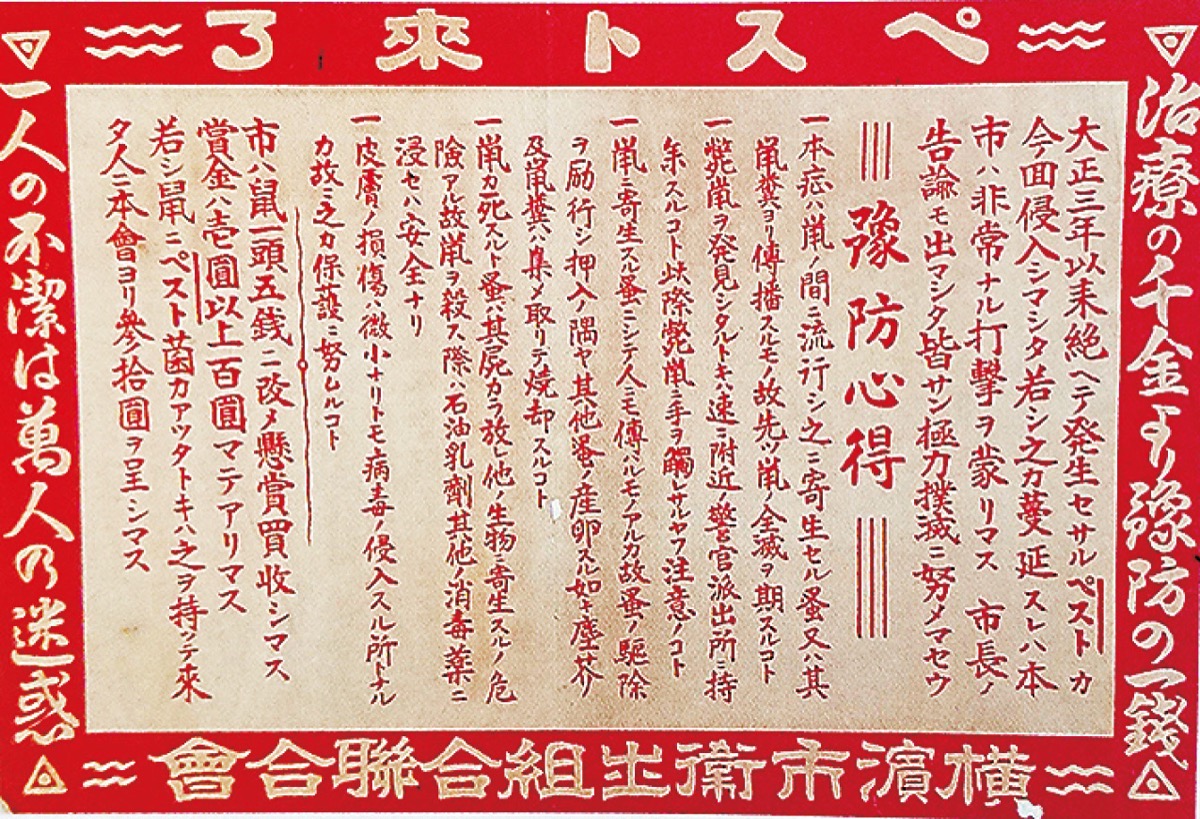 ペスト來る
治療の千金より豫防の一錢
大正三年以来絶ヘテ発生セサルペストカ
今回侵入シマシタ若シ之カ蔓延スレハ本
市ハ非常ナル打撃ヲ蒙リマス 市長ノ
告諭モ出マシタ皆サン極力撲滅ニ努メマセウ
豫防心得
一本症ハ鼠ノ間ニ流行シ之ニ寄生セル蚤又ハ其
鼠糞ヨリ傳播スルモノ故先ツ鼠ノ全滅ヲ期スルコト
一斃鼠ヲ発見シタルトキハ速ニ附近ノ警官派出所ニ持
参スルコト此際斃鼠ニ手ヲ觸レサルヤフ注意ノコト
一鼠ニ寄生スル蚤ニシテ人ニモ傳ハルモノアルカ故蚤ノ駆除
ヲ励行シ押入ノ隅ヤ其他蚤ノ産卵スル如キ塵芥
及鼠糞ハ集メ取リテ焼却スルコト
一鼠カ死スルト蚤ハ其屍カラ放レ他ノ生物ニ寄生スルノ危
險アル故鼠ヲ殺ス際ハ石油乳劑其他ノ消毒薬ニ
浸セハ安全ナリ
一皮膚ノ損傷ハ微小ナリトモ病毒ノ侵入スル所トナル
カ故ニ之カ保護ニ努ムルコト
市ハ鼠一頭五銭ニ改メ懸賞買收シマス
賞金ハ壱圓以上百圓マテアリマス
若シ鼠ニペスト菌カアツタトキハ之ヲ持ツテ来
タ人ニ本會ヨリ參拾圓ヲ呈シマス
一人の不潔は萬人の迷惑
横濱市衛生組合聯合會